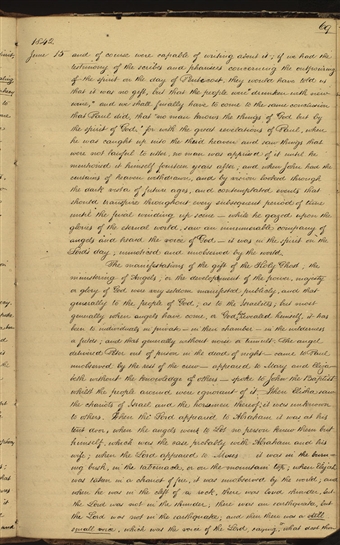 69
1842
June 15 and of course were capable of writing about it; if we had the
testimony of the scribes and pharisees concerning the outpouring
of the spirit on the day of Pentecost, they would have told us
that it was no gift, but that the people were "drunken with new
wine," and we shall finally have to come to the same conclusion
that Paul did, that "no man knows the things of God but by
the spirit of God," for with the great revelations of Paul, when
he was caught up into the third heaven and saw things that
were not lawful to utter, no man was apprised of it until he
mentioned it himself fourteen years after; and when John had the
curtains of heaven withdrawn, and by vision looked through
the dark vista of future ages, and contemplated events that
should transpire throughout every subsequent period of time
until the final winding up scene — while he gazed upon the
glories of the eternal world, saw an innumerable company of
angels and heard the voice of God — it was in the spirit on the
Lord's day, unnoticed and unobserved by the world.
The manifestations of the gift of the Holy Ghost; the
ministering of Angels; or the development of the power, majesty
or glory of God were very seldom manifested publicly, and that
generally to the people of God; as to the Israelites; but most
generally when angels have come, or God revealed himself, it has
been to individuals in private — in their chamber — in the wilderness
or fields; and that generally without noise or tumult. The angel
delivered Peter out of prison in the dead of night — came to Paul
unobserved by the rest of the crew — appeared to Mary and Eliza-
beth without the knowledge of others — spoke to John the Baptist
whilst the people around were ignorant of it. When Elisha saw
the chariots of Israel and the horsemen thereof, it was unknown
to others. When the Lord appeared to Abraham it was at his
tent door; when the angels went to Lot no person knew them but
himself, which was the case probably with Abraham and his
wife; when the Lord appeared to Moses it was in the burn-
ing bush, in the tabernacle, or on the mountain top; when Elijah
was taken in a chariot of fire, it was unobserved by the world; and
when he was in the cleft of a rock, there was loud thunder, but
the Lord was not in the thunder; there was an earthquake, but
the Lord was not in the earthquake; and then there was a still
small voice, which was the voice of the Lord, saying, "what dost thou